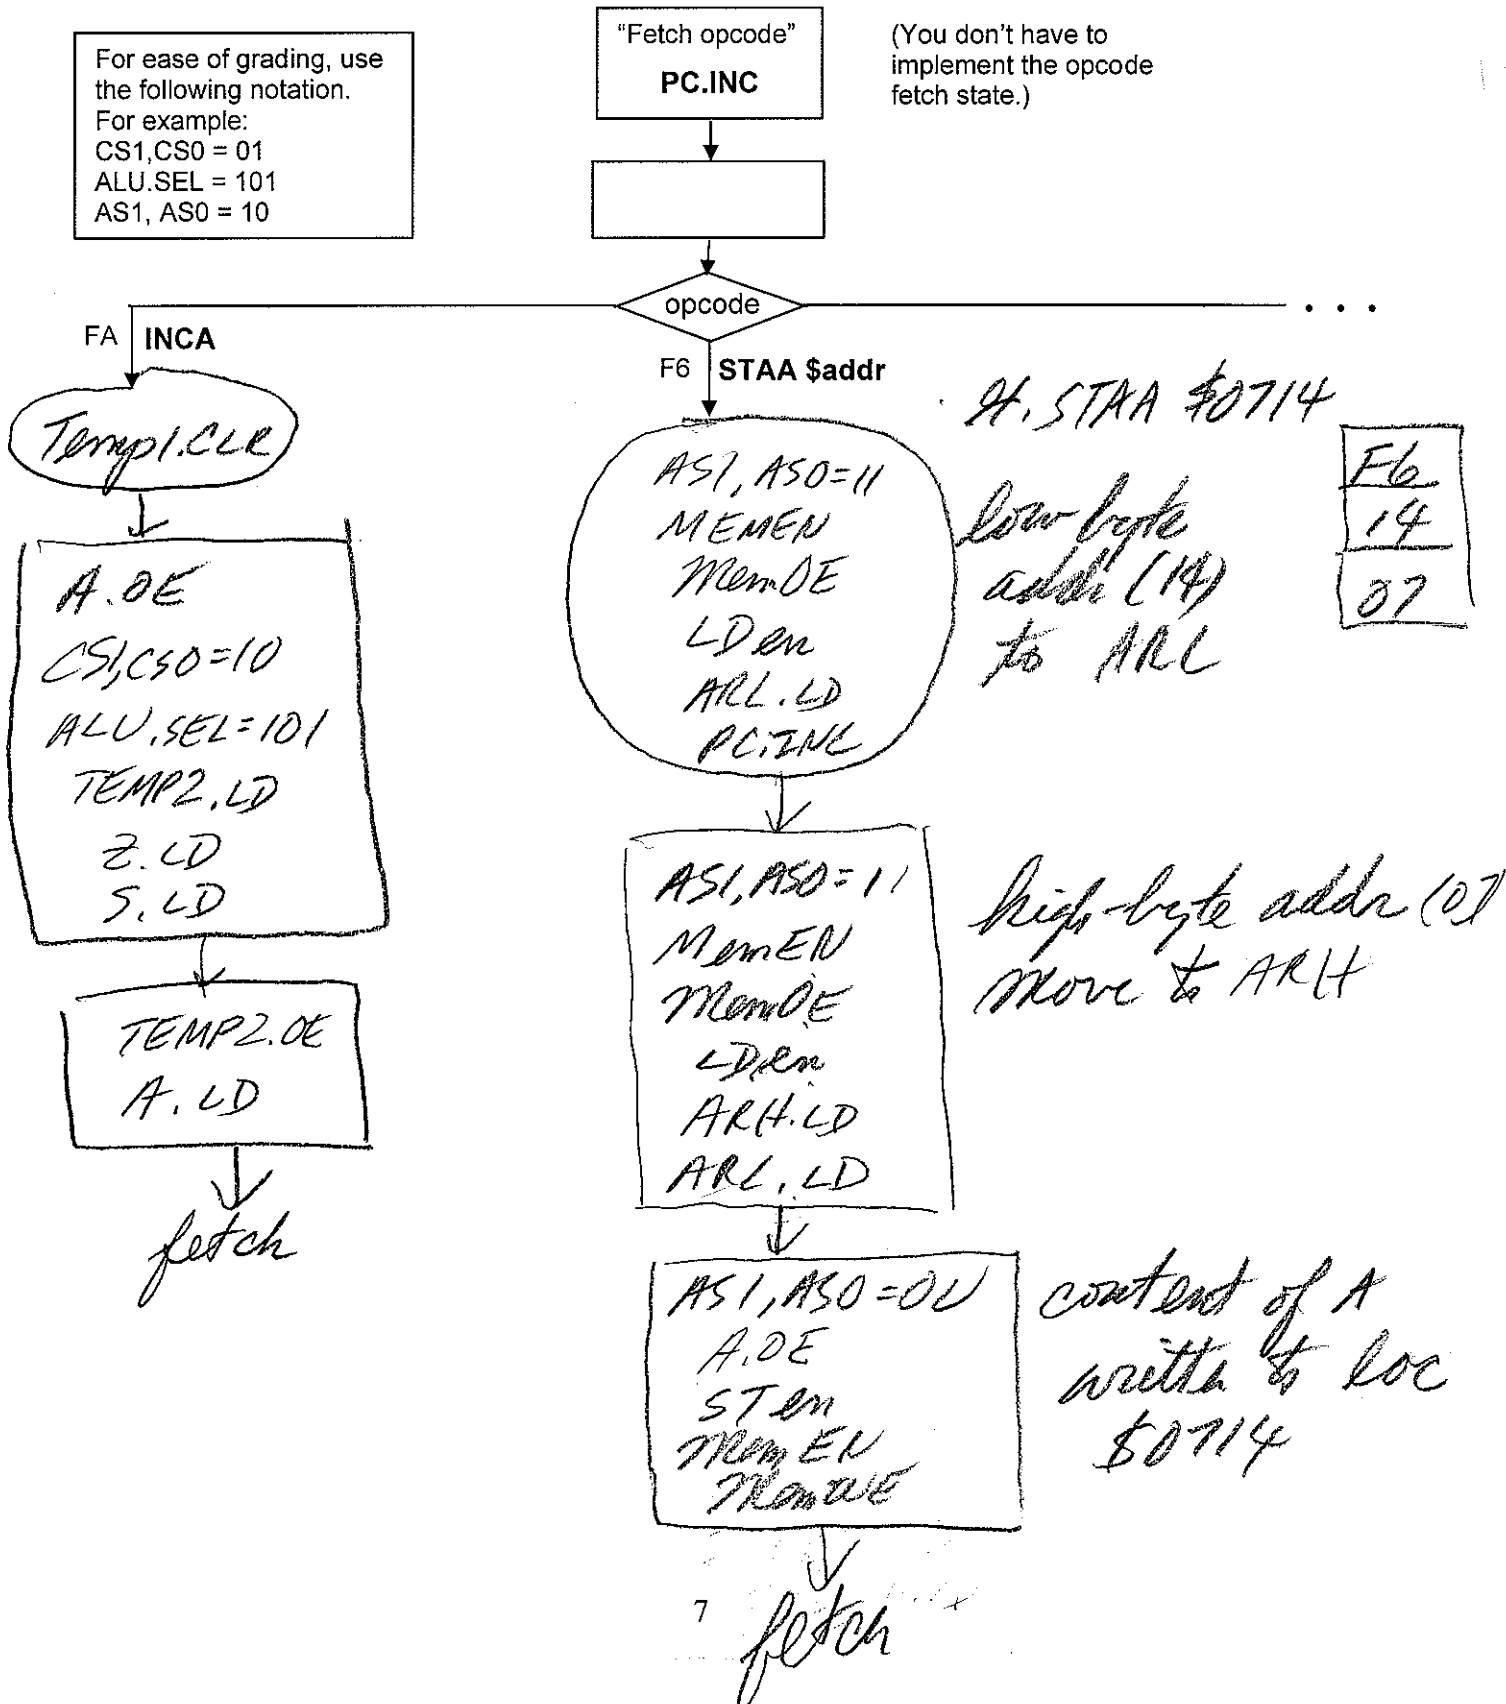 For ease of grading, use
the following notation.
For example:
CS1,CS0 = 01
ALU.SEL = 101
AS1, AS0 = 10
"Fetch opcode"
PC.INC
(You don't have to
implement the opcode
fetch state.)
opcode
. . .
FA INCA
Temp1.CLR
A.OE
CS1,CS0=10
ALU.SEL=101
TEMP2.LD
Z.LD
S.LD
TEMP2.OE
A.LD
fetch
F6 STAA $addr
AS1, AS0=11
MEMEN
MemOE
LDen
ARL.LD
PC.INC
STAA $0714
low byte
addr (14)
to ARL
F6
14
07
AS1,AS0=11
MemEN
MemOE
LDen
ARH.LD
ARL.LD
high-byte addr (07
move to ARH
AS1,AS0=00
A.OE
STen
MemEN
MemWE
content of A
written to loc
$0714
fetch
7